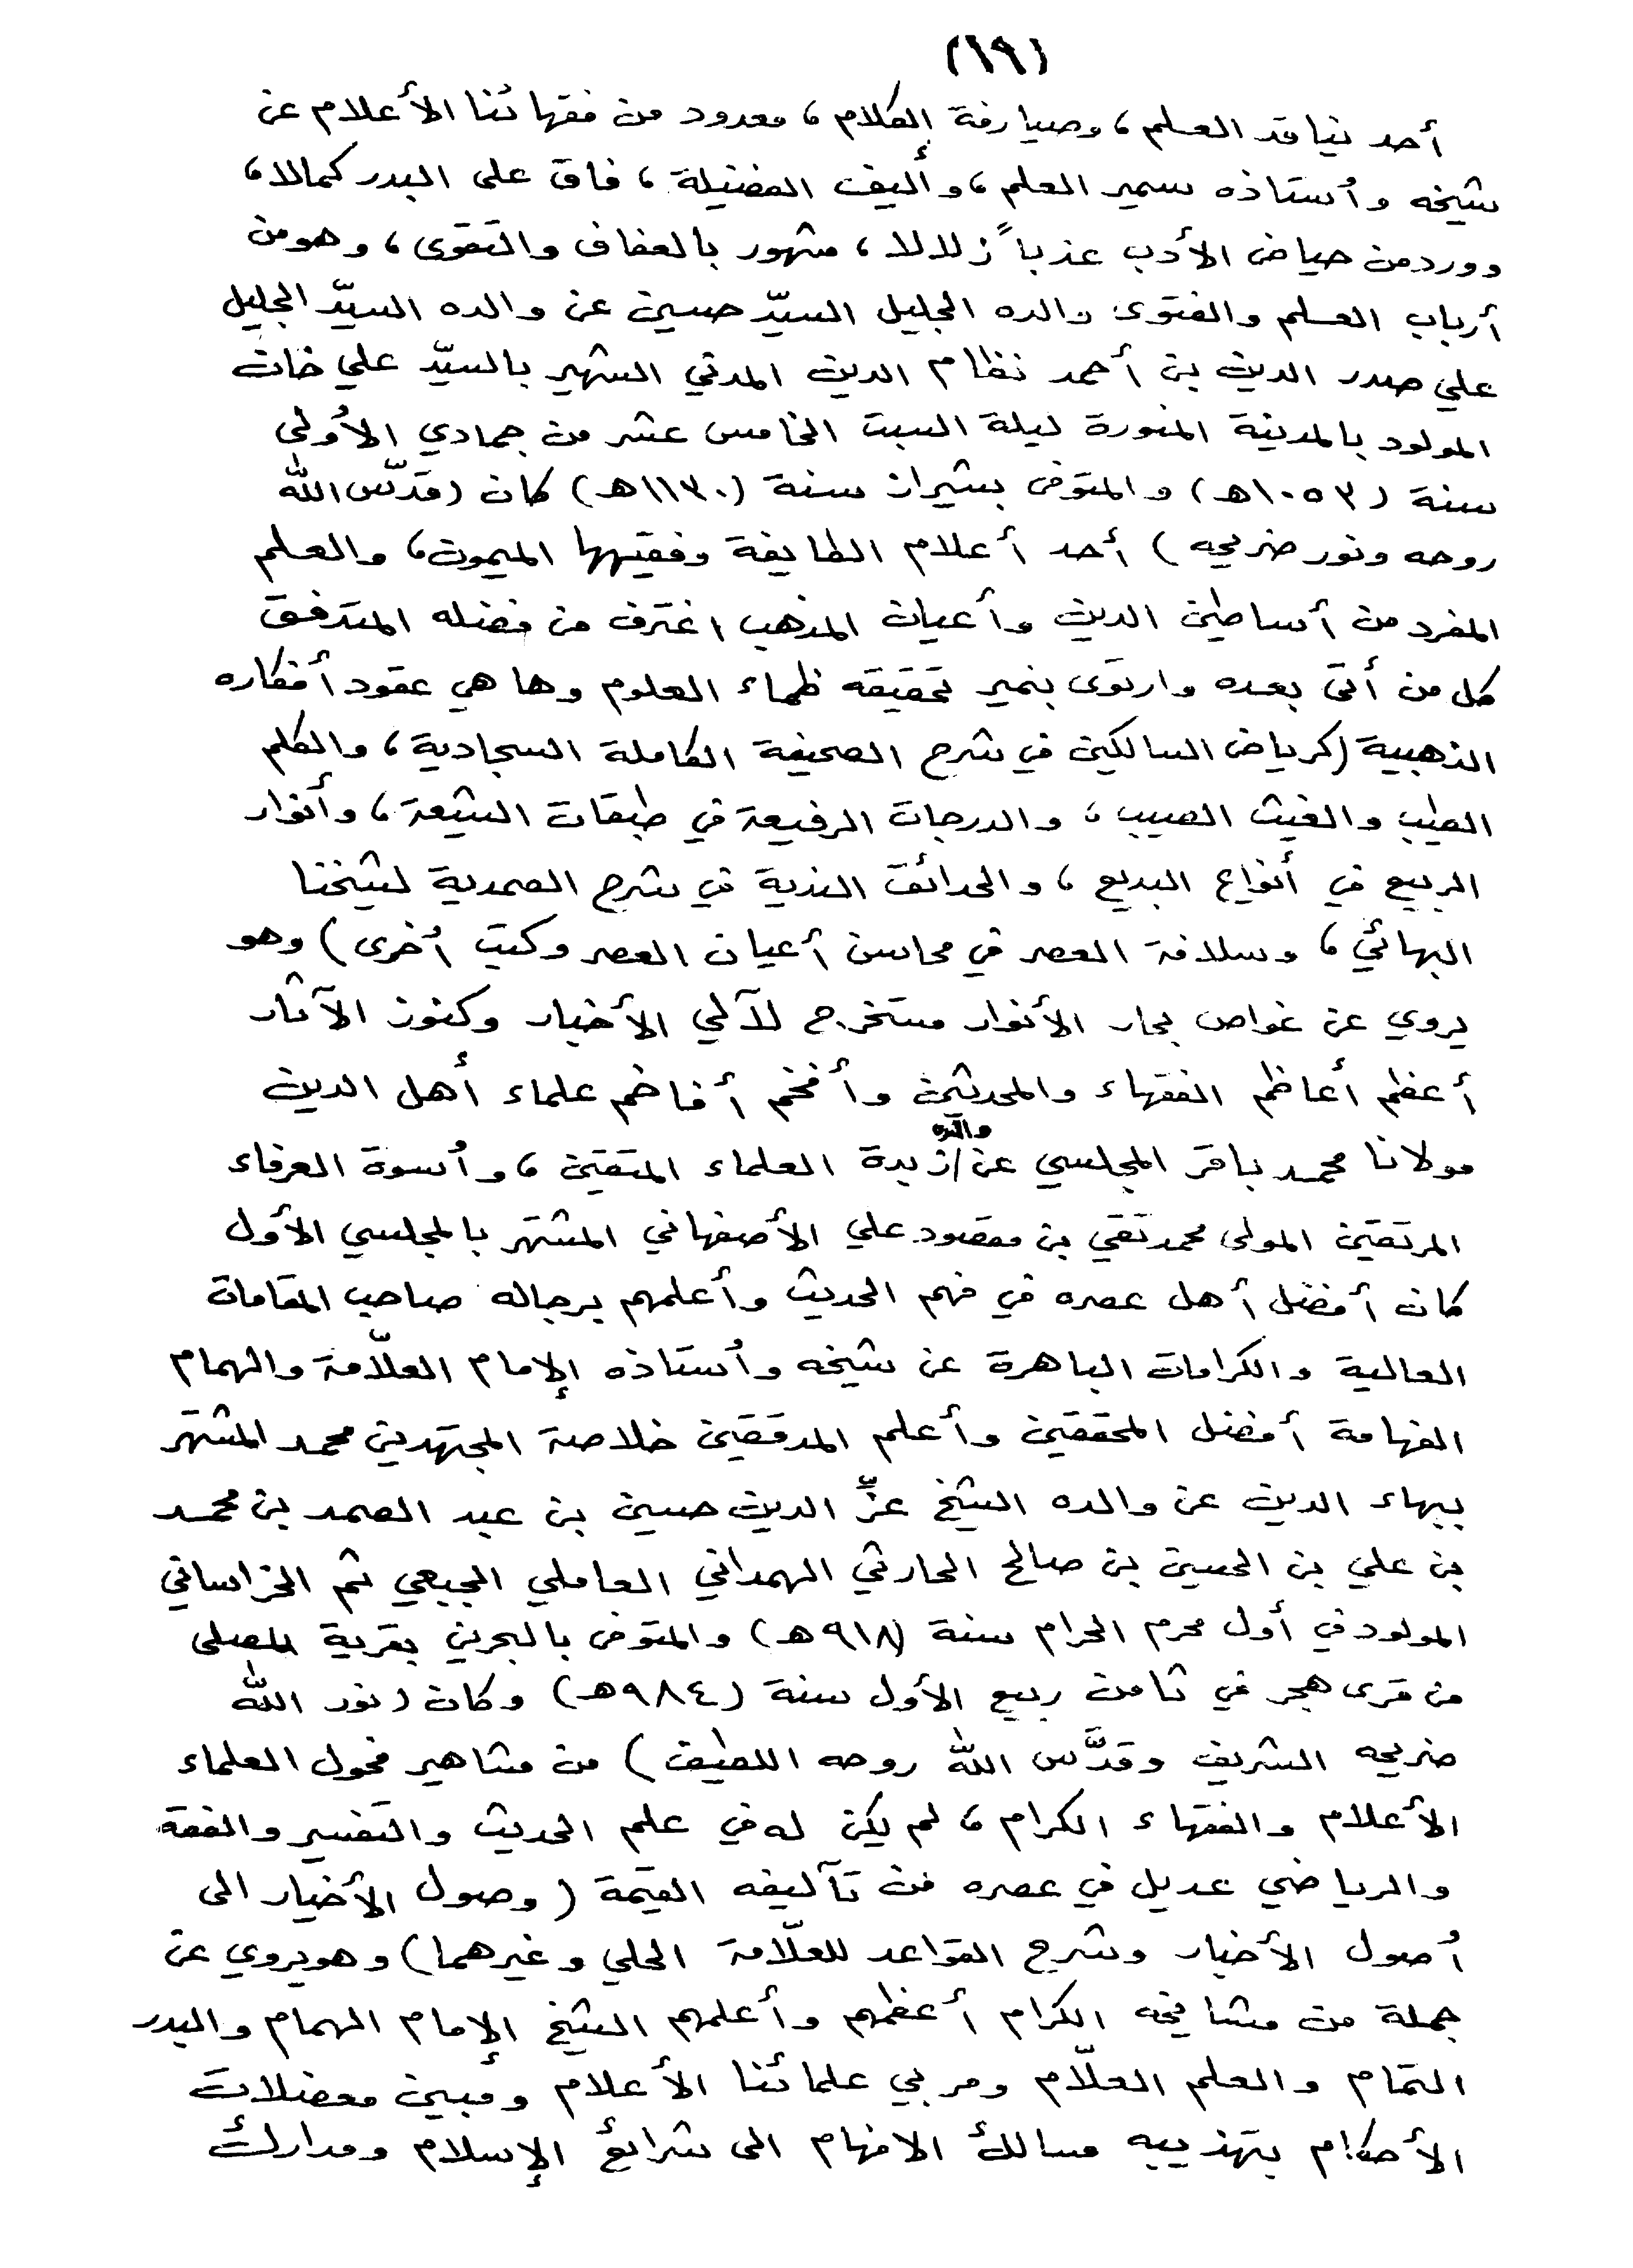 (١٩)
أحد نياقد العلم، وصيارفة الكلام، معدود من فقهائنا الأعلام عن
شيخه وأُستاذه سمير العلم، وأليف الفضيلة، فاق على البدر كمالا،
وورد من حياض الأدب عذباً زلالا، مشهور بالعفاف والتقوى، وهو من
أرباب العلم والفتوى والده الجليل السيّد حسين عن والده السيّد الجليل
علي صدر الدين بن أحمد نظام الدين المدني الشهير بالسيّد علي خان
المولود بالمدينة المنورة ليلة السبت الخامس عشر من جمادي الأُولى
سنة (١٠٥٣هـ) والمتوفى بشيراز سنة (١١٣٠هـ) كان (قدّس الله
روحه ونور ضريحه) أحد أعلام الطايفة وفقيهها الميمون، والعلم
المفرد من أساطين الدين وأعيان المذهب اغترف من فضله المتدفق
كل من أتى بعده وارتوى بنمير تحقيقه ظماء العلوم وها هي عقود أفكاره
الذهبية (كرياض السالكين في شرح الصحيفة الكاملة السجادية، والكلم
الطيب والغيث الصيب، والدرجات الرفيعة في طبقات الشيعة، وأنوار
الربيع في أنواع البديع، والحدائق الندية في شرح الصمدية لشيخنا
البهائي، وسلافة العصر في محاسن أعيان العصر وكتب أُخرى) وهو
يروي عن غواص بحار الأنوار مستخرج لآلي الأخبار وكنوز الآثار
أعظم أعاظم الفقهاء والمحدثين وأفخم أفاخم علماء أهل الدين
مولانا محمد باقر المجلسي عن/والده زبدة العلماء المتقين، وأُسوة العرفاء
المرتقين المولى محمد تقي بن مقصود علي الأصفهاني المشتهر بالمجلسي الأول
كان أفضل أهل عصره في فهم الحديث وأعلمهم برجاله صاحب المقامات
العالية والكرامات الباهرة عن شيخه وأُستاذه الإمام العلّامة والهمام
الفهامة أفضل المحققين وأعلم المدققين خلاصة المجتهدين محمد المشتهر
ببهاء الدين عن والده الشيخ عزّ الدين حسين بن عبد الصمد بن محمد
بن علي بن الحسين بن صالح الحارثي الهمداني العاملي الجبعي ثم الخراساني
المولود في أول محرم الحرام سنة (٩١٨هـ) والمتوفى بالبحرين بقرية المصلى
من قرى هجر في ثامن ربيع الأول سنة (٩٨٤هـ) وكان (نور الله
ضريحه الشريف وقدَّس الله روحه اللطيف) من مشاهير فحول العلماء
الأعلام والفقهاء الكرام، لم يكن له في علم الحديث والتفسير والفقه
والرياضي عديل في عصره فمن تآليفه القيمة (وصول الأخيار الى
أُصول الأخبار وشرح القواعد للعلّامة الحلي وغيرهما) وهو يروي عن
جملة من مشايخه الكرام أعظمهم وأعلمهم الشيخ الإمام الهمام والبدر
التمام والعلم العلّام ومربي علمائنا الأعلام ومبين معضلات
الأحكام بتهذيبه مسالك الافهام الى شرائع الإسلام ومدارك